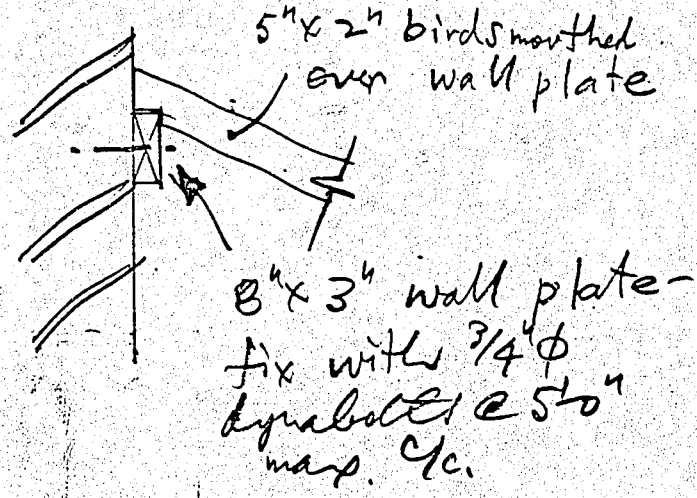 5"x 2" birdsmouthed
over wall plate
8"x 3" wall plate-
fix with 3/4"ϕ
dynabolts @ 5'-0"
max. c/c.